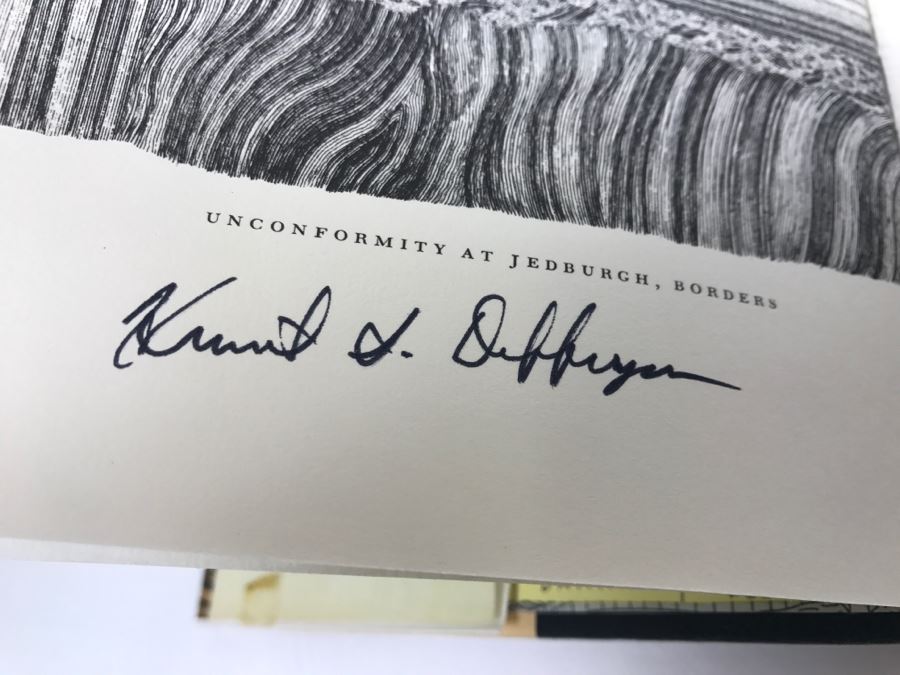 UNCONFORMITY AT JEDBURGH, BORDERS
Kenneth S. Deffeyes